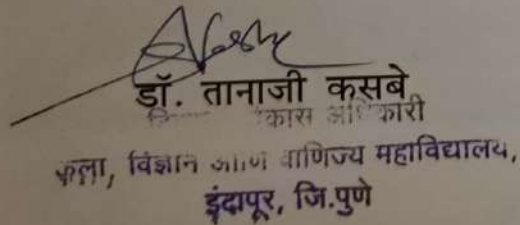 डॉ. तानाजी कसबे
कला, विज्ञान आणि वाणिज्य महाविद्यालय,
इंदापूर, जि.पुणे